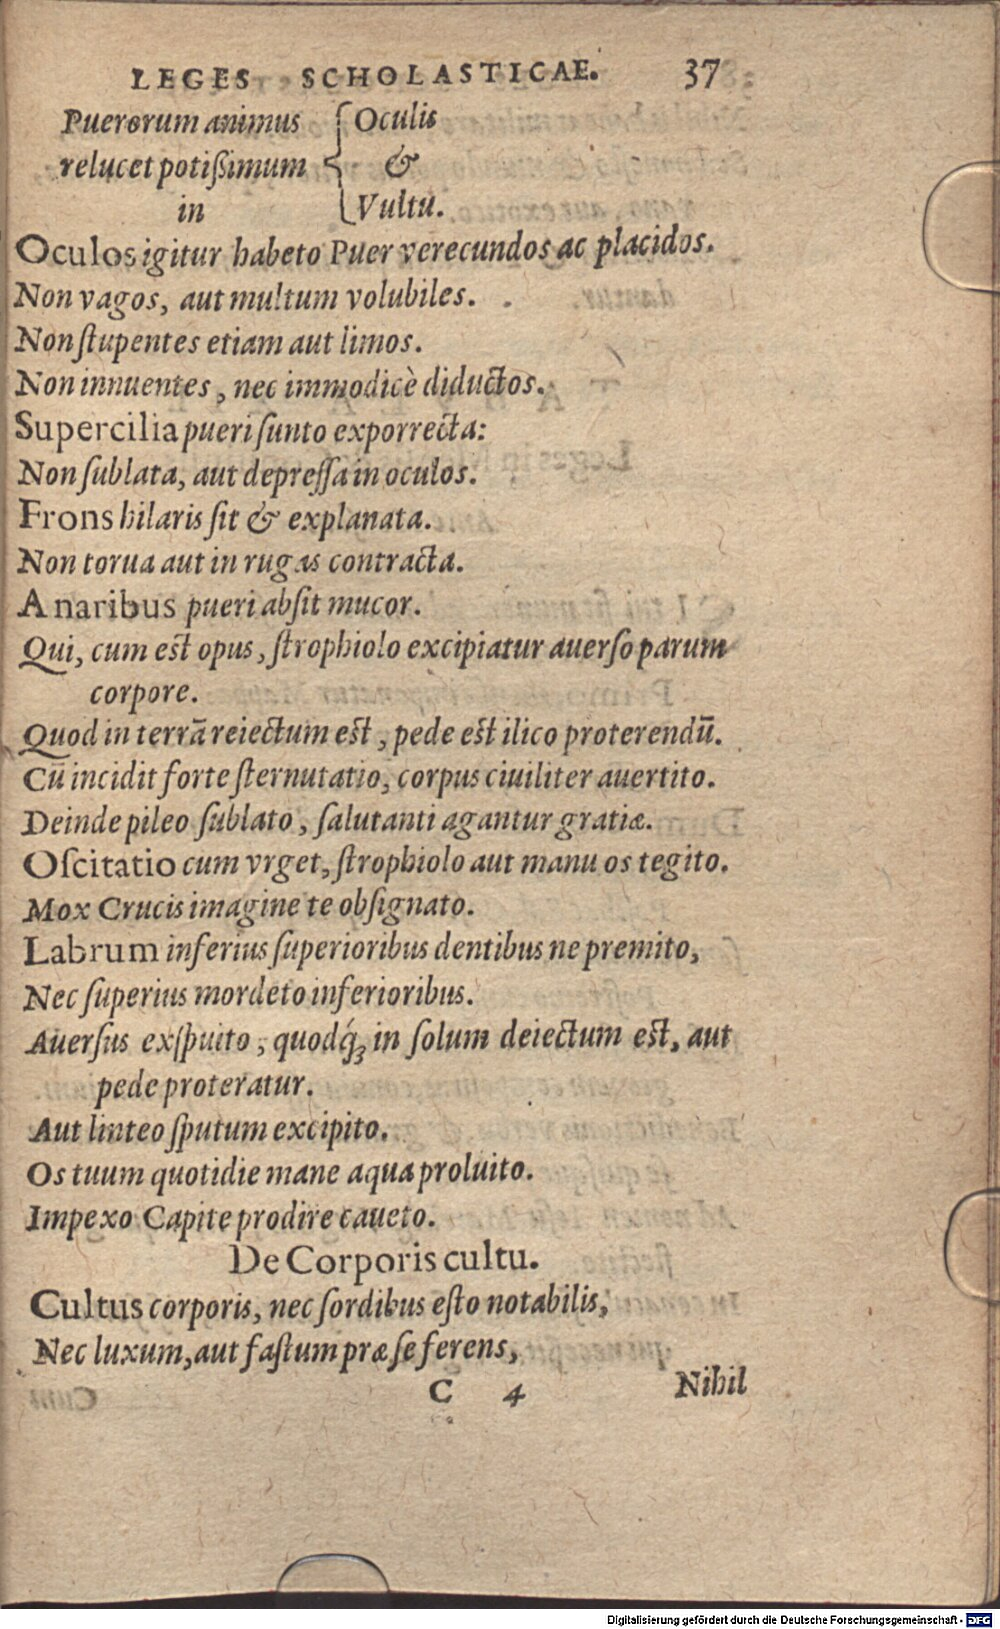 LEGES SCHOLASTICAE. 37
Puerorum animus { Oculis
relucet potißimum &
in Vultu.
Oculos igitur habeto Puer verecundos ac placidos.
Non vagos, aut multum volubiles.
Non ſtupentes etiam aut limos.
Non innuentes, nec immodicè diductos.
Supercilia pueri ſunto exporrecta:
Non ſublata, aut depreſſa in oculos.
Frons hilaris ſit & explanata.
Non torua aut in rugas contracta.
A naribus pueri abſit mucor.
Qui, cum eſt opus, ſtrophiolo excipiatur auerſo parum
corpore.
Quod in terrā reiectum eſt, pede eſt ilico proterendū.
Cū incidit forte ſternutatio, corpus ciuiliter auertito.
Deinde pileo ſublato, ſalutanti agantur gratiæ.
Oſcitatio cum vrget, ſtrophiolo aut manu os tegito.
Mox Crucis imagine te obſignato.
Labrum inferius ſuperioribus dentibus ne premito,
Nec ſuperius mordeto inferioribus.
Auerſus exſpuito, quodq́; in ſolum deiectum eſt, aut
pede proteratur.
Aut linteo ſputum excipito.
Os tuum quotidie mane aqua proluito.
Impexo Capite prodire caueto.
De Corporis cultu.
Cultus corporis, nec ſordibus eſto notabilis,
Nec luxum, aut faſtum præ ſe ferens,
C 4 Nihil
Digitalisierung gefördert durch die Deutsche Forschungsgemeinschaft - DFG